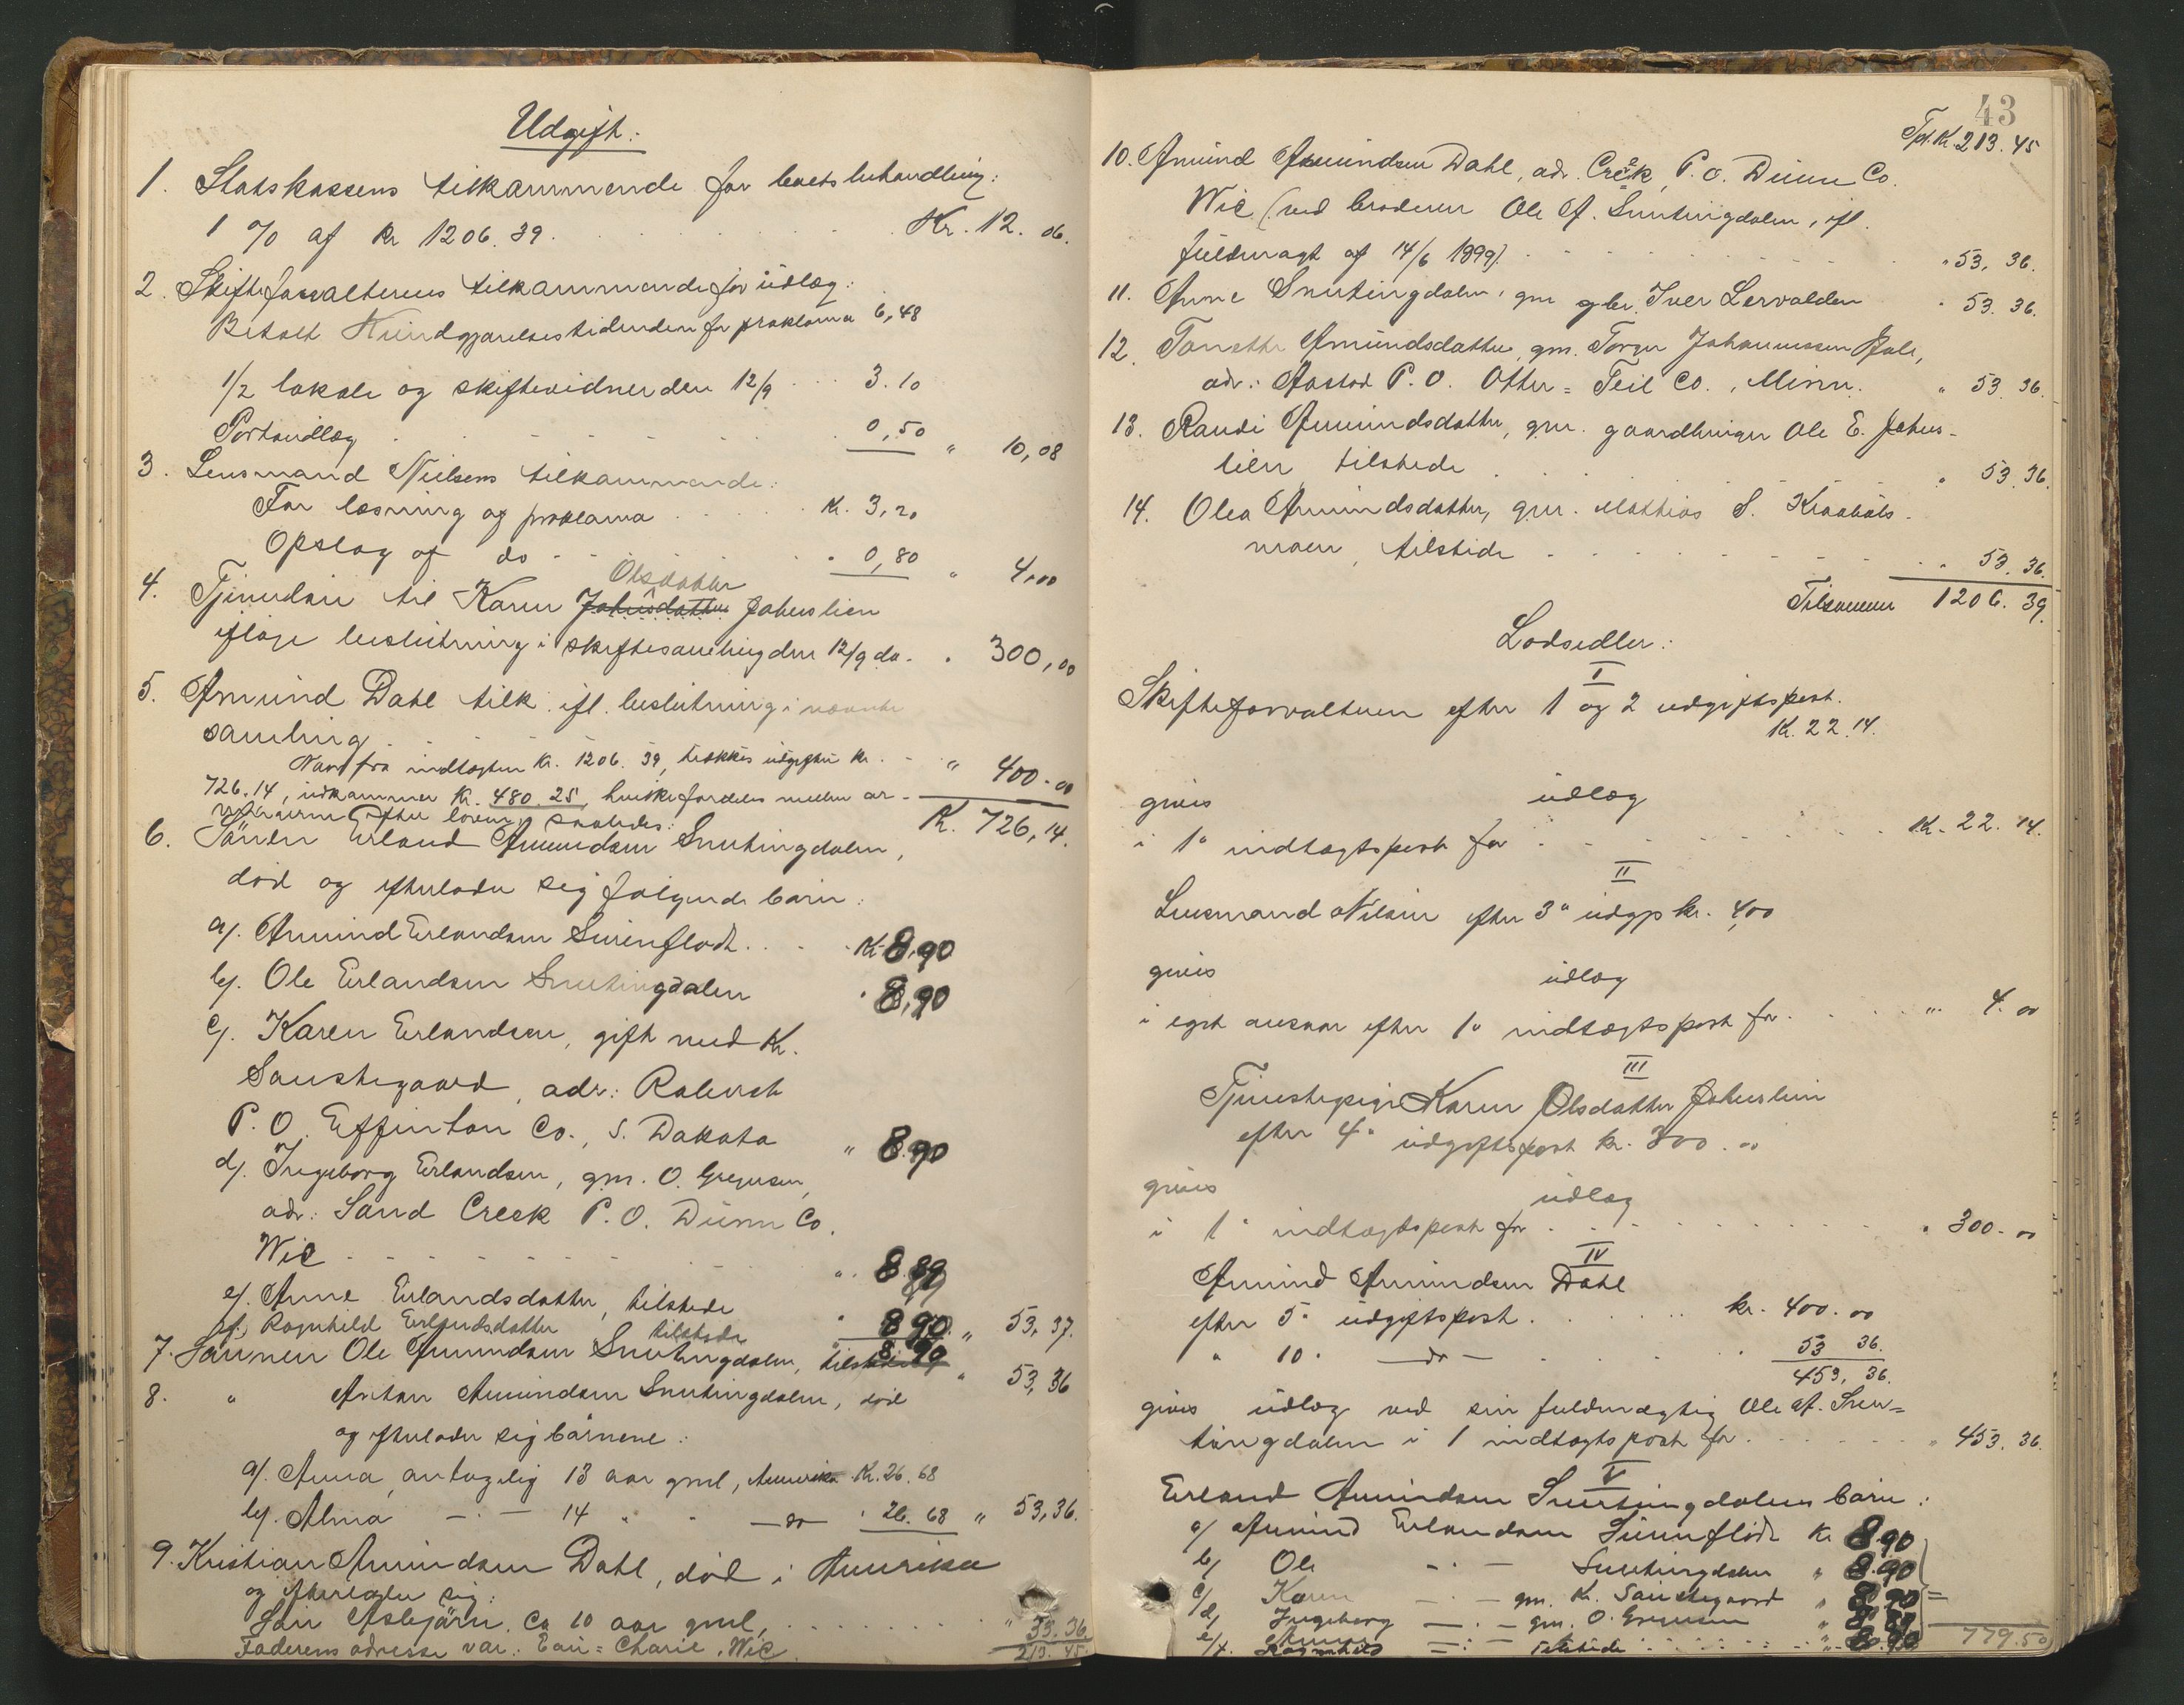 Udgift:
1. Statskassens tilkommende for boets behandling:
1 % af kr 1206.39 . . . Kr. 12.06.
2. Skifteforvalterens tilkommende for udlæg:
Betalt Kundgjørelsestidenden for proklama 6,48
1/2 lokale og skiftevidner den 12/9 . . . 3.10
Portoudlæg . . . 0,50 " 10,08
3. Lensmand Nielsens tilkommende:
For læsning og proklama . . . K. 3,20
Opslag af do . . . 0,80 " 4,00
Olsdatter
4. Tjenerløn til Karen Johnsdatter Johnslien
ifølge beslutning i skiftesamling den 12/9 da. . 300,00
5. Amund Dahl tilk. ifl. beslutning i nævnte
samling . . . " 400.00
Naar fra indtægten kr. 1206.39, trækkes udgifter kr.
726.14, udkommer kr. 480.25, hvilke fordeles mellem ar-
vingerne efter loven saaledes: K. 726,14.
6. Sønnen Erland Amundsen Snertingdalen,
død og efterlader sig følgende børn:
a). Amund Erlandsen Svenflodt . . . K 8,90
b). Ole Erlandsen Snertingdalen " 8,90
c). Karen Erlandsen, gift med K.
Saustegaard, adr: Rolench
P.O. Effinton Co., S. Dakota " 8.90
d). Ingeborg Erlandsen, gm. O. Gregersen,
adr: Sand Creek P.O. Dunn Co.
Wis . . . " 8.89
e). Anne Erlandsdatter, tilstede " 8.90
f) Ragnhild Erlandsdatter tilstede 8.90 " 53,37.
7. Sønnen Ole Amundsen Snertingdalen, tilstede " 53,36
8. " Anton Amundsen Snertingdalen, død
og efterlader sig børnene:
a). Anna, antagelig 13 aar gml, Amerika K. 26.68
b). Alma — " — 14 " " — do — " 26.68 " 53,36.
9. Kristian Amundsen Dahl, død i Amerika
og efterlader sig:
Søn Asbjørn, ca 10 aar gml, . . . " 53,36.
Faderens adresse var: Eau-Charie, Wis. 213.45
43
Tpt. K. 213.45
10. Amund Amundsen Dahl, adr. Creek, P.O. Dunn Co.
Wis (ved broderen Ole A. Snertingdalen, ifl.
fuldmagt af 14/6 1899). . . . " 53,36.
11. Anne Snertingdalen, gm gbr. Iver Lervolden " 53.36.
12. Tonette Amundsdatter, gm. Torger Johannessen Dale,
adr.: Aastad P.O. Otter-Teil Co., Minn. " 53.36.
13. Randi Amundsdatter, gm. gaardbruger Ole E. Johns-
lien, tilstede . . . " 53.36.
14. Olea Amundsdatter, gm. Mathias S. Kraabøls-
moen, tilstede . . . " 53.36.
Tilsammen 1206.39.
Lodsedler:
I
Skifteforvalteren efter 1 og 2 udgiftspost.
K. 22.14.
gives udlæg
i 1" indtægtspost for . . . K. 22.14.
II
Lensmand Nilsen efter 3" udgp kr. 4,00
gives udlæg
i eget ansvar efter 1" indtægtspost for . . . " 4.00
III
Tjenestepige Karen Olsdatter Johnslien
efter 4" udgiftspost kr. 300.00
gives udlæg
i 1" indtægtspost for . . . " 300.00
IV
Amund Amundsen Dahl
efter 5" udgiftspost . . . kr. 400.00
" 10" — do — . . . " 53 36.
453,36.
gives udlæg ved sin fuldmægtig Ole A. Sner-
tingdalen i 1 indtægtspost for . . . " 453.36.
V
Erland Amundsen Snertingdalens børn:
a) Amund Erlandsen Svenflodt K 8.90
b) Ole — " — Snertingdalen " 8.90
c) Karen — " — gm. K. Saustegaard " 8.90
d) Ingeborg — " — gm. O. Gregersen " 8.89
e) Anne
f. Ragnhild — " — tilstede . . . " 8.90 779.50